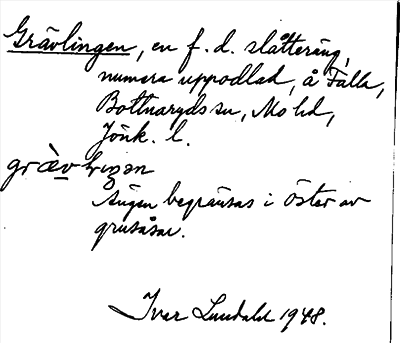 Grävlingen, en f. d. slåtteräng,
numera uppodlad, å Falla,
Bottnaryds sn, Mo hd,
Jönk. l.
Ängen begränsas i öster av
grusåsar.
Ivar Lundahl 1948.